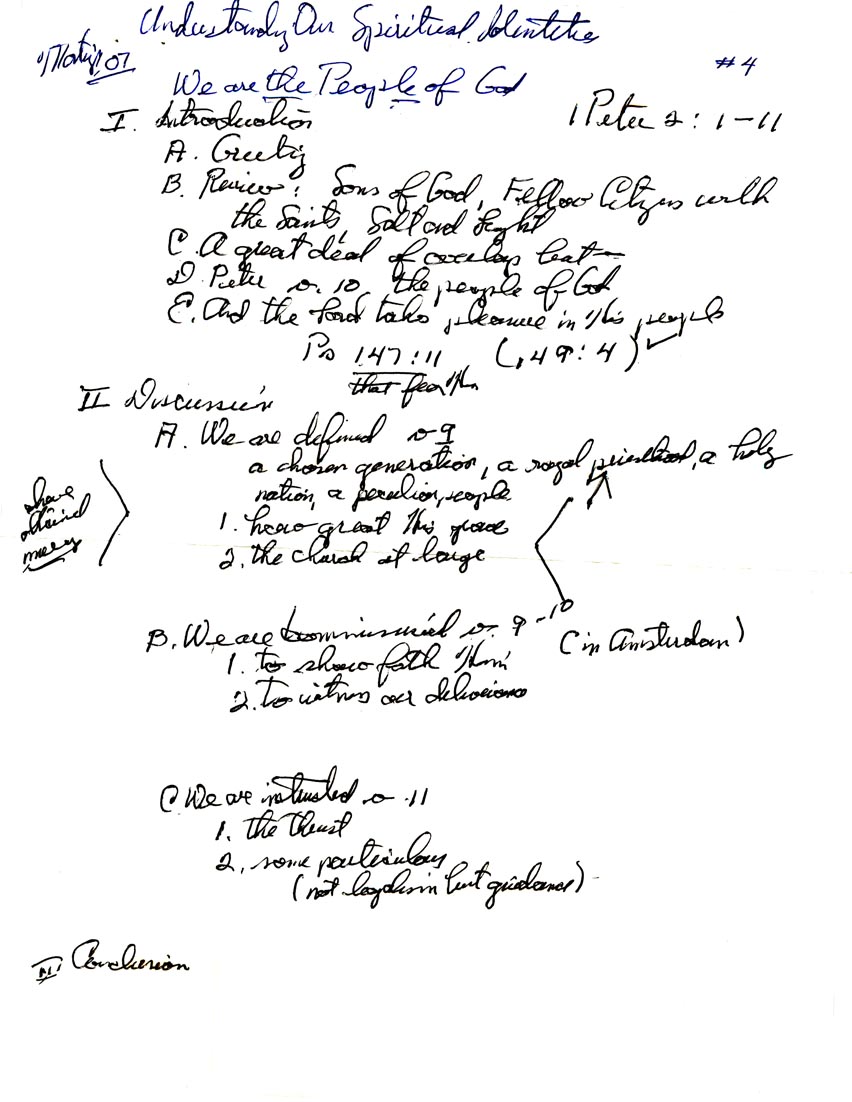 Understanding Our Spiritual Identities
07 #4
We are the People of God
I. Introduction 1 Peter 2:1-11
A. Greeting
B. Review: Sons of God, Fellow Citizens with
the Saints, Salt and Light
C. A great deal of overlap but—
D. Peter v. 10 the people of God
E. And the Lord takes pleasure in His people
Ps 147:11 (149:4) ✓
that fear Him
II Discussion
A. We are defined v 9
a chosen generation, a royal priesthood, a holy
nation, a peculiar people
have
obtained
mercy
1. how great His grace
2. the church at large
B. We are commissioned v. 9-10 (in Amsterdam)
1. to show forth Him
2. To witness our deliverance
C. We are instructed v 11
1. the Thrust
2. some particulars
(not legalism but guidance)
III Conclusion